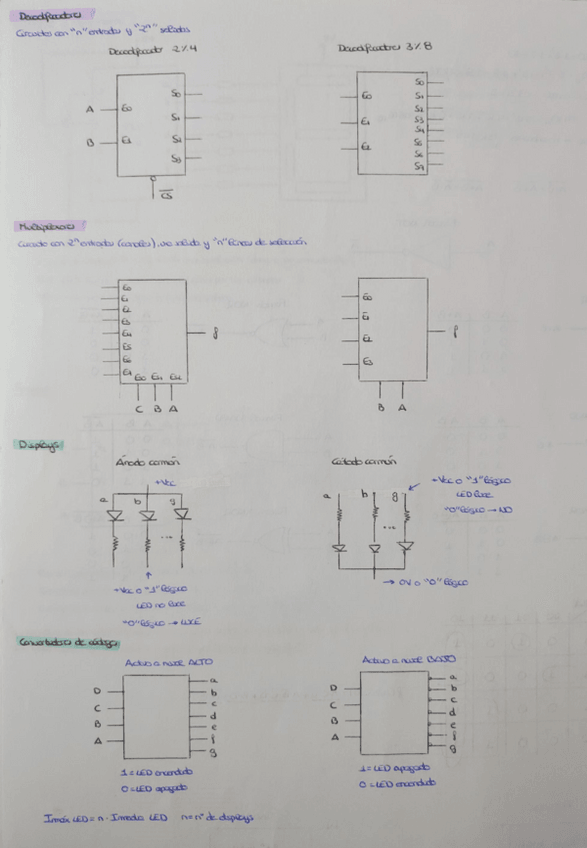 Decodificadores
Circuitos con "n" entradas y "2ⁿ" salidas
Decodificador 2/4
Decodificadores 3/8
A E0 S0
S1
B E1 S2
S3
CS
E0 S0
S1
E1 S2
S3
S4
E2 S5
S6
S7
Multiplexores
Circuito con 2ⁿ entradas (canales), una salida y "n" líneas de selección
E0
E1
E2
E3
E4
E5
E6
E7
f
C B A
E0
E1
E2
E3
f
B A
Displays
Ánodo común
+Vcc
a b g
...
+Vcc o "1" lógico
LED no luce
"0" lógico → LUCE
Cátodo común
a b g
+Vcc o "1" lógico
LED luce
"0" lógico → NO
...
→ 0V o "0" lógico
Convertidores de códigos
Activo a nivel ALTO
D
C
B
A
a
b
c
d
e
f
g
1 = LED encendido
0 = LED apagado
Activo a nivel BAJO
D
C
B
A
a
b
c
d
e
f
g
1 = LED apagado
0 = LED encendido
Imáx LED = n · Imedia LED n = nº de displays